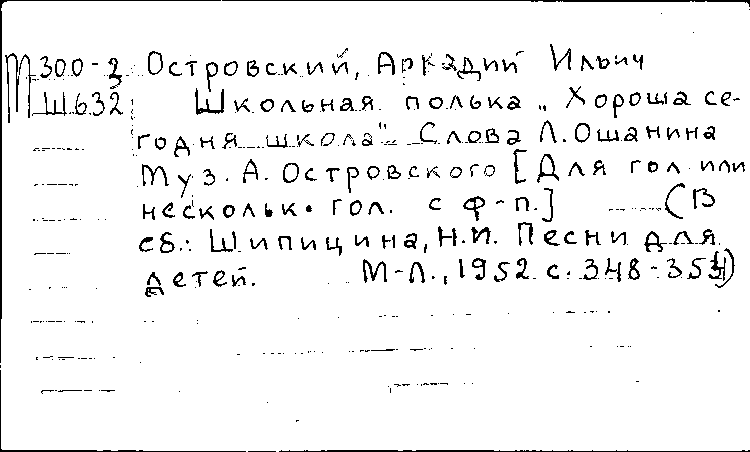 М 300-2 Островский, Аркадий Ильич
Ш632 Школьная полька „Хороша се-
годня школа" Слова Л. Ошанина
Муз. А. Островского [Для гол. или
несколък. гол. с ф-п.] (В
сб.: Шипицина, Н.И. Песни для
детей. М-Л., 1952 с. 348-354)